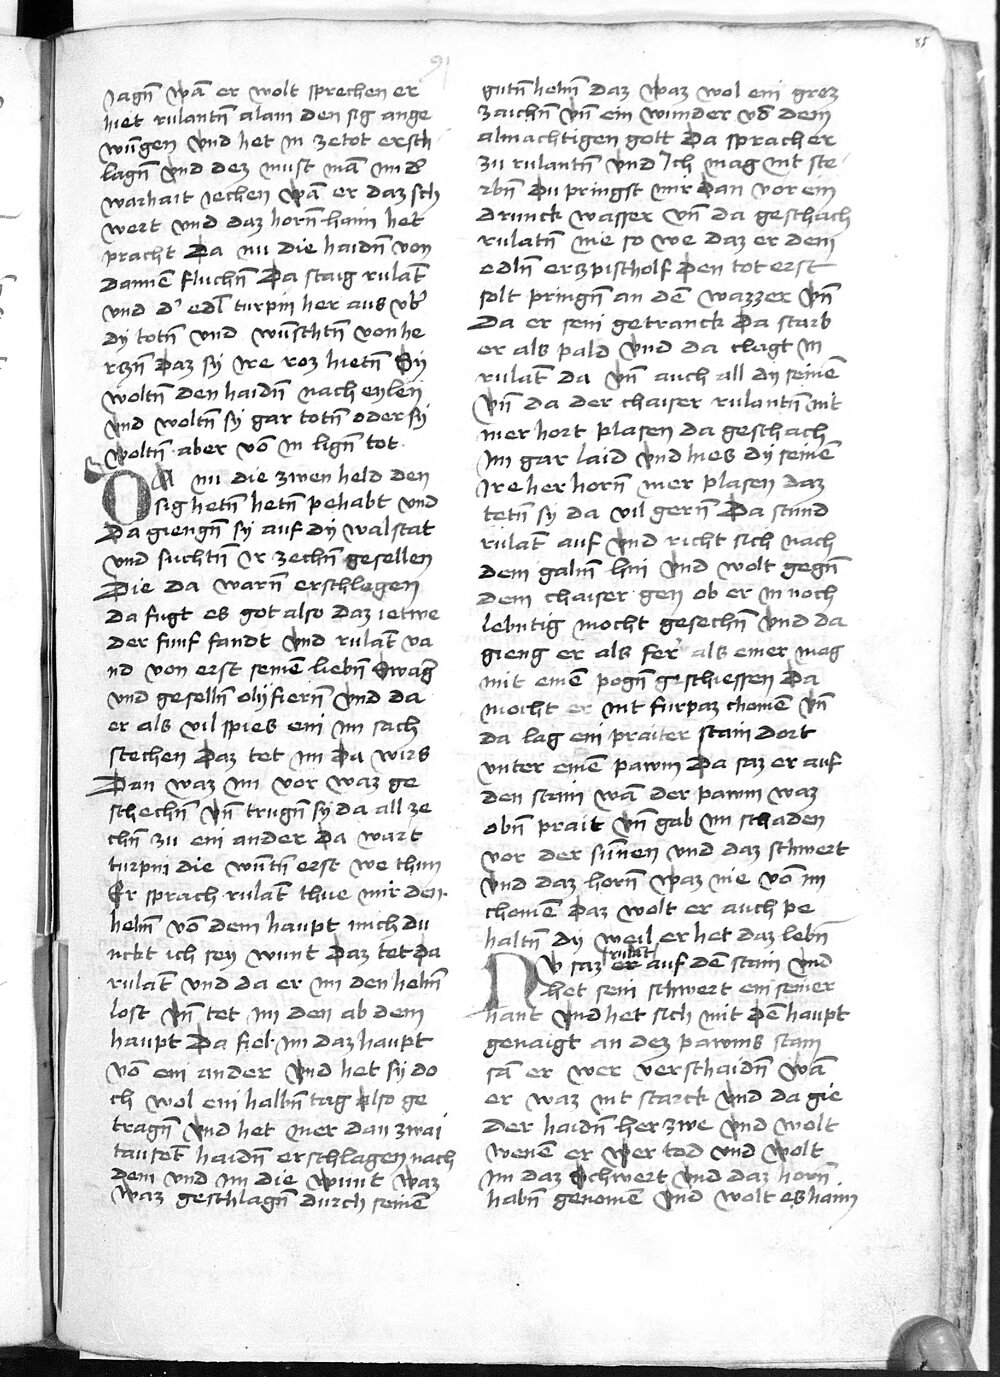 85
91
Jagn̄ wā er wolt sprechen er
hiet rulantn̄ alain den sig ange
wūgen vnd het in ze tot ersch
lagn̄ vnd dez must mā im d̕
warhait iechen wā er daz sch
wert vnd daz horn̄ haim het
pracht Da nu die haidn̄ von
dannē fluchn̄ Da staig rulāt
vnd d̕ edl turpin her aus vb̕
dy totn̄ vnd wūschtn̄ von he
rczn̄ daz sy ire roz hietn̄ Sy
woltn̄ den haidn̄ nach eylen
vnd woltn̄ sy gar totn̄ oder sy
woltn̄ aber vō in lign̄ tot
DA nu die zwen held den
sig hetn̄ hetn̄ pehabt vnd
Da giengn̄ sy auf dy walstat
vnd suchtn̄ ir zechn̄ gesellen
Die da warn̄ erschlegen
da fugt es got also daz ietwe
der funf fandt vnd rulāt va
nd von erst seinē liebn̄ swag̕
vnd geselln̄ olyfiern̄ vnd da
er als vil spies ein im sach
stechen Daz tet im Da wirs
Dan waz im vor waz ge
schechn̄ vn̄ trugn̄ sy da all ze
chn̄ zu ein ander Da wart
turpin die wūtn̄ erst we thun
Er sprach rulāt thue mir den
helm̄ vō dem haupt mich du
nckt ich sey wunt Daz tet Da
rulāt vnd da er im den helm̄
lost vn̄ tet im den ab dem
haupt Da fiel im daz haupt
vō ein ander vnd het sy do
ch wol ein halbn̄ tag also ge
tragn̄ vnd het mer dan zwai
tausēt haidn̄ erschlagen nach
dem vnd im die wunt waz
waz geschlagn̄ durch seinē
gutn̄ helm̄ daz waz wol ein grez
zaichn̄ vn̄ ein wunder vō dem
almachtigen gott Da sprach er
zu rulantn̄ vnd Ich mag nit ste
rbn̄ Du pringst mir Dan vor ein
drunck wasser vn̄ da geschach
rulatn̄ nie so we daz er dem
edln̄ erczpischolf Den tot erst
solt pringn̄ an dē wazzer vn̄
Da er sein getranck Da starb
er als pald vnd da clagt in
rulāt da vn̄ auch all dy seinē
vn̄ da der chaiser rulantn̄ nit
mer hort plasen da geschach
im gar laid vnd hies dy seinē
Ire her horn̄ mer plasen daz
tetn̄ sy da vil gern̄ Da stund
rulāt auf vnd richt sich nach
dem galm̄ hin vnd wolt gegn̄
dem chaiser gen ob er in noch
lebntig mocht gesechn̄ vnd da
gieng er als fer̕ als einer mag
mit einē pogn̄ geschiessen Da
mocht er nit furpaz chomē vn̄
da lag ein praiter stain dort
vnter einē pawm Da saz er auf
den stain wā der pawm waz
obn̄ prait vn̄ gab im schaden
vor der sūnen vnd daz schwert
vnd daz horn̄ waz nie vō im
chomē Daz wolt er auch pe
haltn̄ dy weil er het daz lebn̄
Nv saz er rulāt auf dē stain vnd
het sein schwert ein seiner
hant vnd het sich mit dē haupt
genaigt an dez pawms stam
sā er wer verschaidn̄ wā
er waz nit starck vnd da gie
der haidn̄ her zwe vnd wolt
wenē er wer tod vnd wolt
im daz schwert vnd daz horn̄
habn̄ genomē vnd wolt es haim